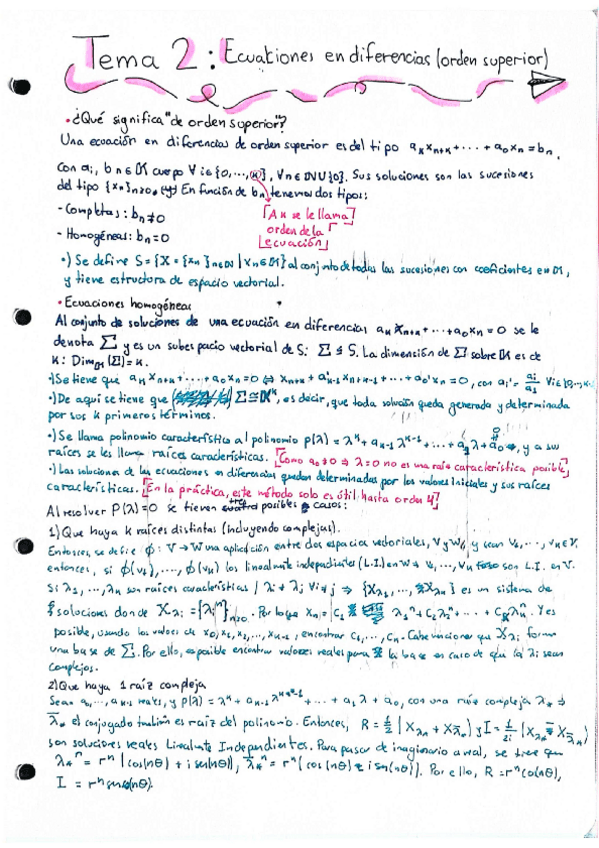 Tema 2: Ecuationes en diferencias (orden superior)
• ¿Qué significa "de orden superior"?
Una ecuación en diferencias de orden superior es del tipo aₖxₙ₊ₖ + ··· + a₀xₙ = bₙ,
Con aᵢ, bₙ ∈ 𝕂 cuerpo ∀i∈{0,...,k}, ∀n∈ℕ∪{0}. Sus soluciones son las sucesiones
del tipo {xₙ}ₙ≥₀. En función de bₙ tenemos dos tipos:
- Completas: bₙ ≠ 0
- Homogéneas: bₙ = 0
[A k se le llama
orden de la
ecuación]
•) Se define S = {X = {xₙ}ₙ∈ℕ | xₙ∈𝕂} al conjunto de todas las sucesiones con coeficientes en 𝕂,
y tiene estructura de espacio vectorial.
• Ecuaciones homogéneas
Al conjunto de soluciones de una ecuación en diferencias aₖxₙ₊ₖ + ··· + a₀xₙ = 0 se le
denota Σ y es un subespacio vectorial de S: Σ ≤ S. La dimensión de Σ sobre 𝕂 es de
k: Dim𝕂(Σ) = k.
•) Se tiene que aₖxₙ₊ₖ + ··· + a₀xₙ = 0 ⇔ xₙ₊ₖ + a'ₖ₋₁xₙ₊ₖ₋₁ + ··· + a₀'xₙ = 0, con aᵢ' =
•) De aquí se tiene que Σ ≅ 𝕂ᵏ, es decir, que toda solución queda generada y determinada
por sus k primeros términos.
•) Se llama polinomio característico al polinomio p(λ) = λᵏ + aₖ₋₁λᵏ⁻¹ + ··· + a₁λ + a₀, y a sus
raíces se les llama raíces características. [Como a₀ ≠ 0 ⇒ λ = 0 no es una raíz característica posible]
•) Las soluciones de las ecuaciones en diferencias quedan determinadas por los valores iniciales y sus raíces
características. [En la práctica, este método solo es útil hasta orden 4]
Al resolver P(λ) = 0 se tienen tres posibles casos:
1) Que haya k raíces distintas (incluyendo complejas).
Entonces, se define ϕ: V → W una aplicación entre dos espacios vectoriales, V y W, y sean v₁, ..., vₙ ∈ V,
entonces, si ϕ(v₁), ..., ϕ(vₙ) los linealmente independientes (L.I.) en W ⇒ v₁, ..., vₙ son L.I. en V.
Si λ₁, ..., λₙ son raíces características / λᵢ ≠ λⱼ ∀i≠j ⇒ {X_λ₁, ..., X_λₙ} es un sistema de
soluciones donde X_λᵢ = {λᵢⁿ}ₙ≥₀. Por lo que xₙ = C₁λ₁ⁿ + C₂λ₂ⁿ + ··· + Cₖλₖⁿ. Y es
posible, usando los valores de x₀, x₁, x₂, ..., xₖ₋₁, encontrar C₁, ..., Cₖ. Cabe mencionar que X_λᵢ forma
una base de Σ. Por ello, es posible encontrar valores reales para la base en caso de que la λᵢ sean
complejos.
2) Que haya 1 raíz compleja
Sean a₀, ..., aₖ₋₁ reales, y p(λ) = λᵏ + aₖ₋₁λᵏ⁻¹ + ··· + a₁λ + a₀, con una raíz compleja λ* ⇒
λ̄* el conjugado también es raíz del polinomio. Entonces, R = ½(X_λ* + X_λ̄*) y I = 1/2i (X_λ* - X_λ̄*)
son soluciones reales Linealmente Independientes. Para pasar de imaginario a real, se tiene que
λ*ⁿ = rⁿ(cos(nθ) + i sen(nθ)), λ̄*ⁿ = rⁿ(cos(nθ) - i sen(nθ)). Por ello, R = rⁿcos(nθ),
I = rⁿsen(nθ).